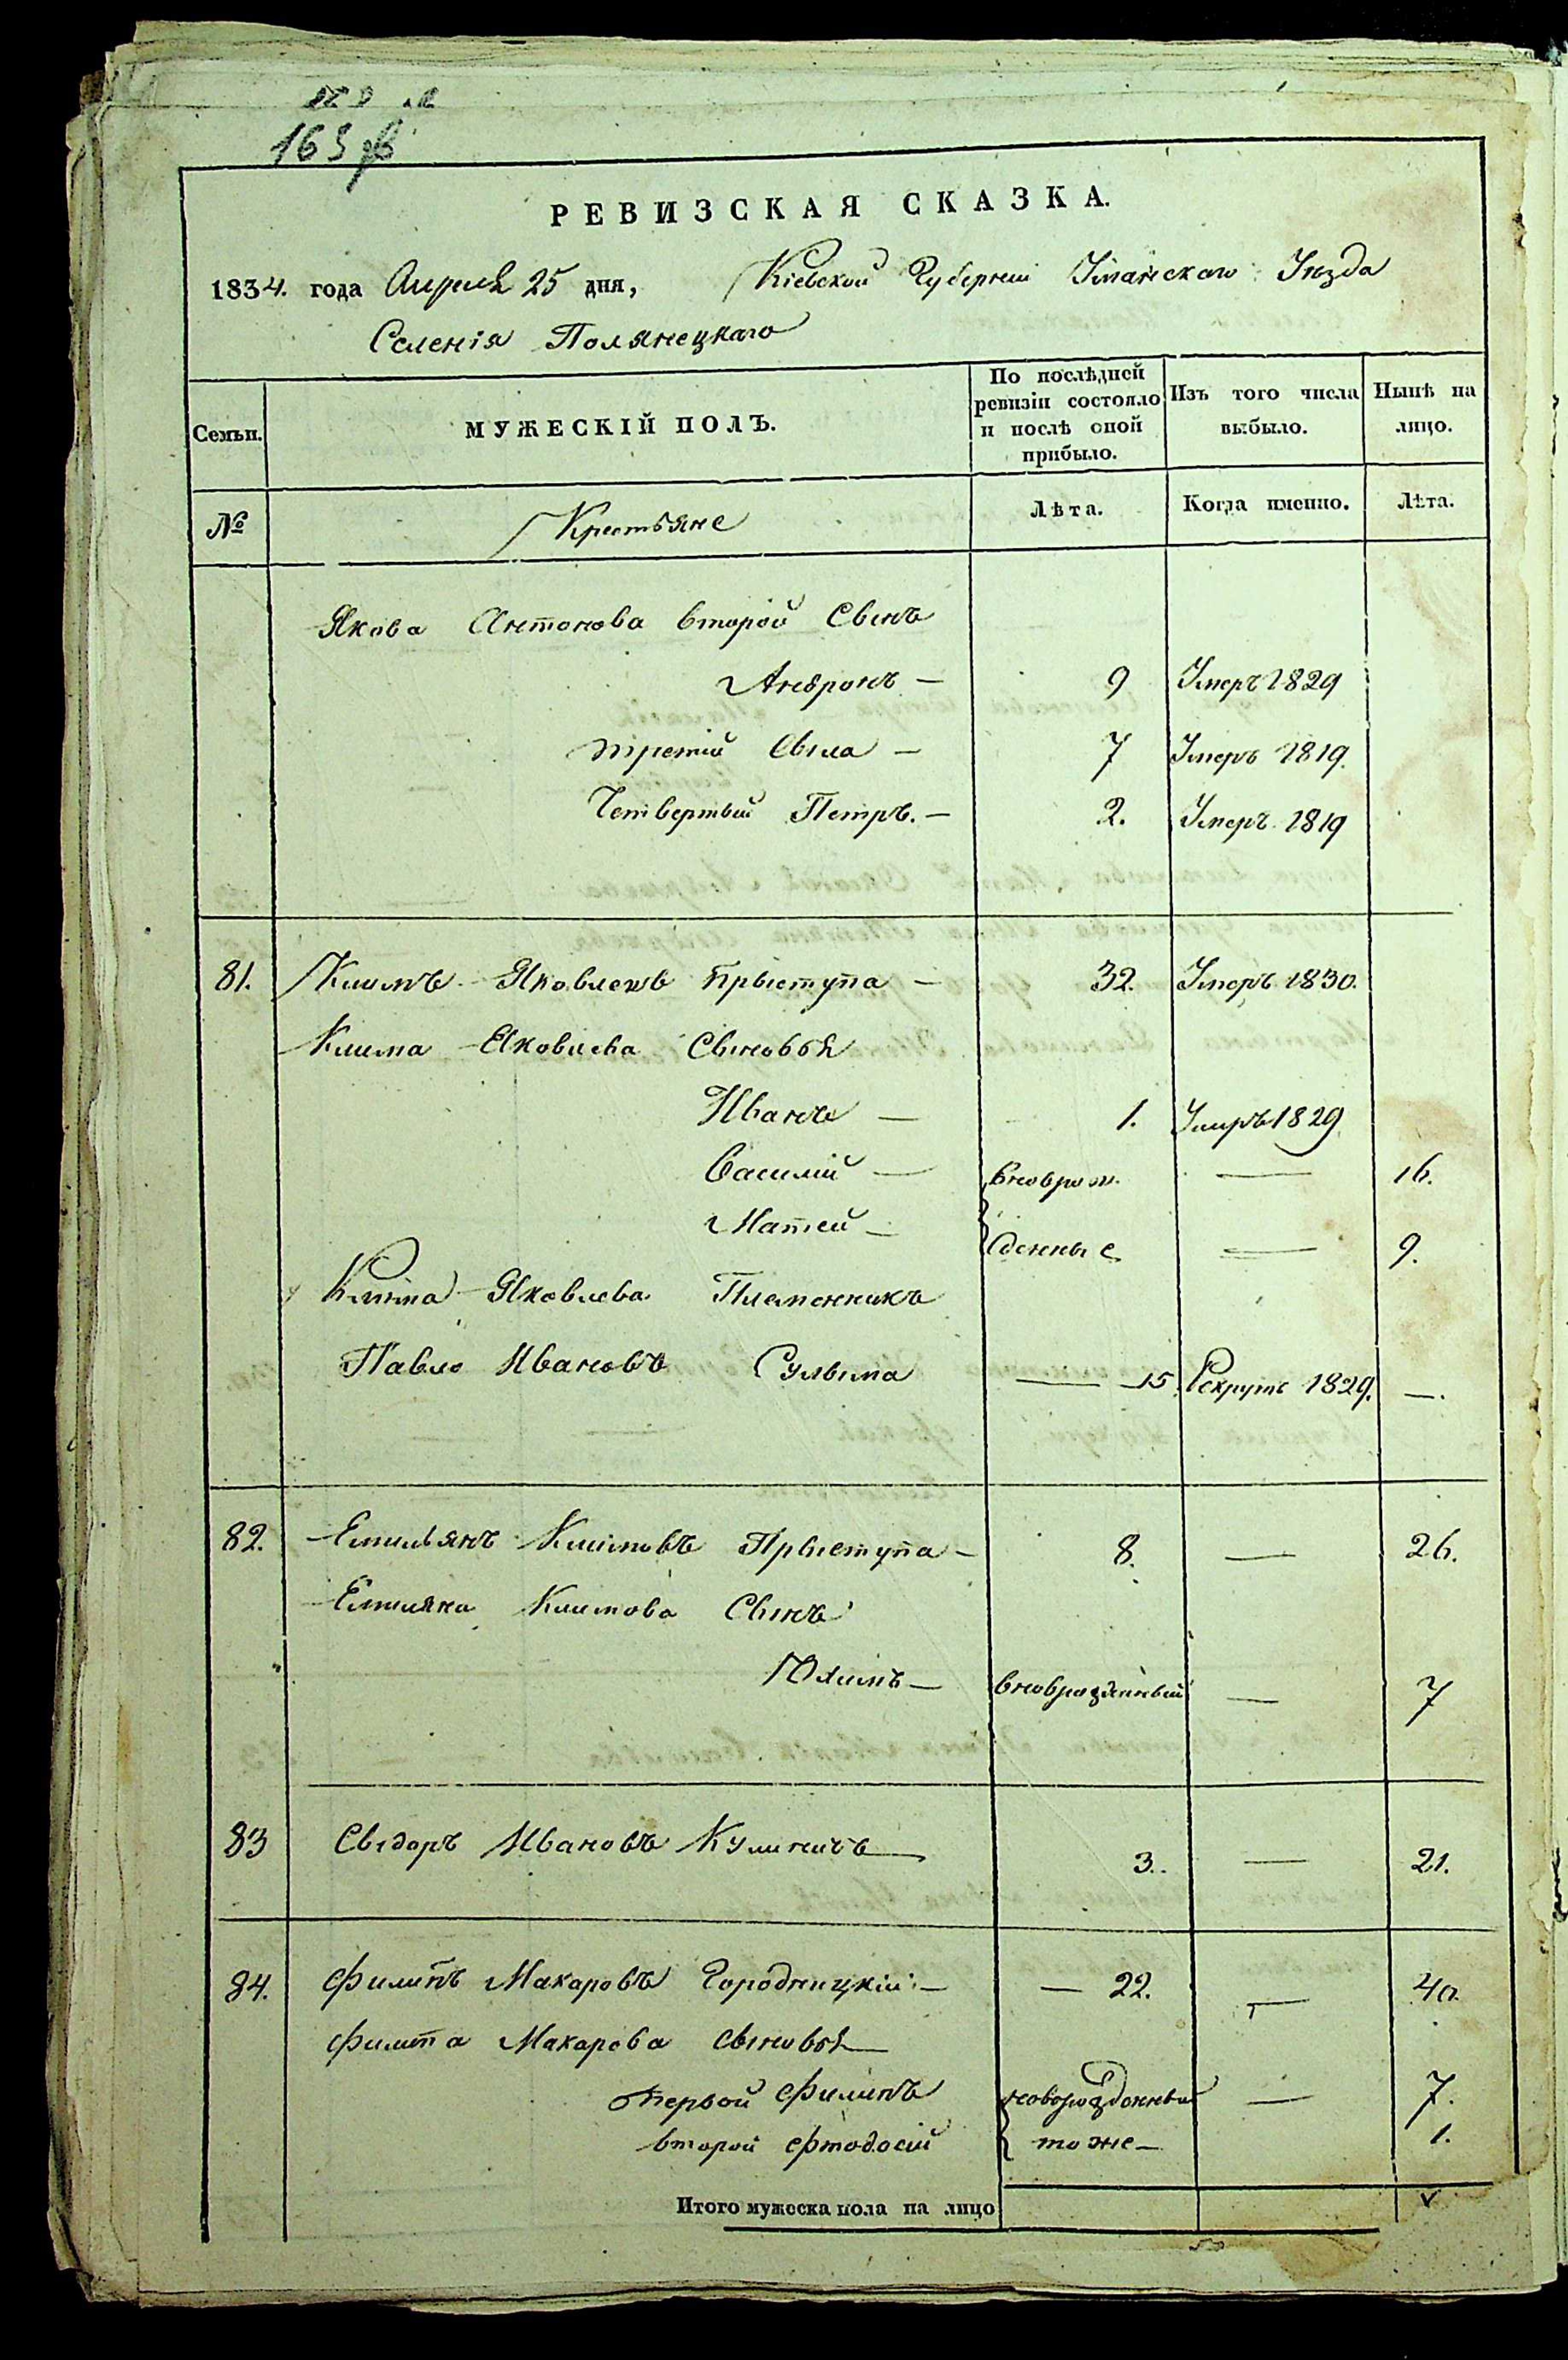 РЕВИЗСКАЯ СКАЗКА.
1834. года Апреля 25 дня, Кіевской Губерніи Уманскаго Уѣзда
Селенія Полянецкаго
Семьи. МУЖЕСКІЙ ПОЛЪ. По послѣдней ревизіи состояло и послѣ оной прибыло. Изъ того числа выбыло. Нынѣ на лицо.
№ Крестьяне Лѣта. Когда именно. Лѣта.
Якова Антонова второй Сынъ
Андронъ — 9 Умеръ 1829
третій Сыла — 7 Умеръ 1819.
Четвертый Петръ. — 2. Умеръ 1819
81. Климъ Яковлевъ Прыступа — 32. Умеръ 1830.
Клима Яковлева Сыновья
Иванъ — 1. Умеръ 1829
Василій — вноврож — 16.
Матей — денные — 9.
Клима Яковлева Племенникъ
Павло Ивановъ Сулыма — 15. Рекрутъ 1829. —.
82. Емильянъ Климовъ Прыступа — 8. — 26.
Емиляна Климова Сынъ
Юхимъ — вноврожденный — 7
83 Сыдоръ Ивановъ Кулиничъ — 3. — 21.
84. Филипъ Макаровъ Городницкій — 22. — 40.
Филипа Макарова сыновья
Первой Филипъ новорожденный — 7.
второй Фтодосий тоже — 1.
Итого мужеска пола на лицо